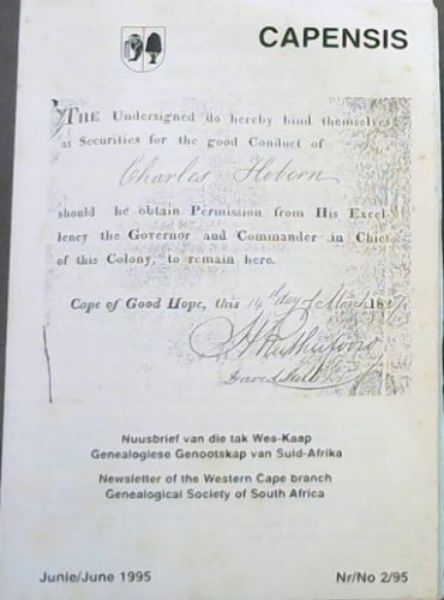 CAPENSIS
THE Undersigned do hereby bind themselves
as Securities for the good Conduct of
Charles Hobern
should he obtain Permission from His Excel-
lency the Governor and Commander in Chief
of this Colony, to remain here.
Cape of Good Hope, this 14th day of March 1827
H Rutherford
David
Nuusbrief van die tak Wes-Kaap
Genealogiese Genootskap van Suid-Afrika
Newsletter of the Western Cape branch
Genealogical Society of South Africa
Junie/June 1995
Nr/No 2/95